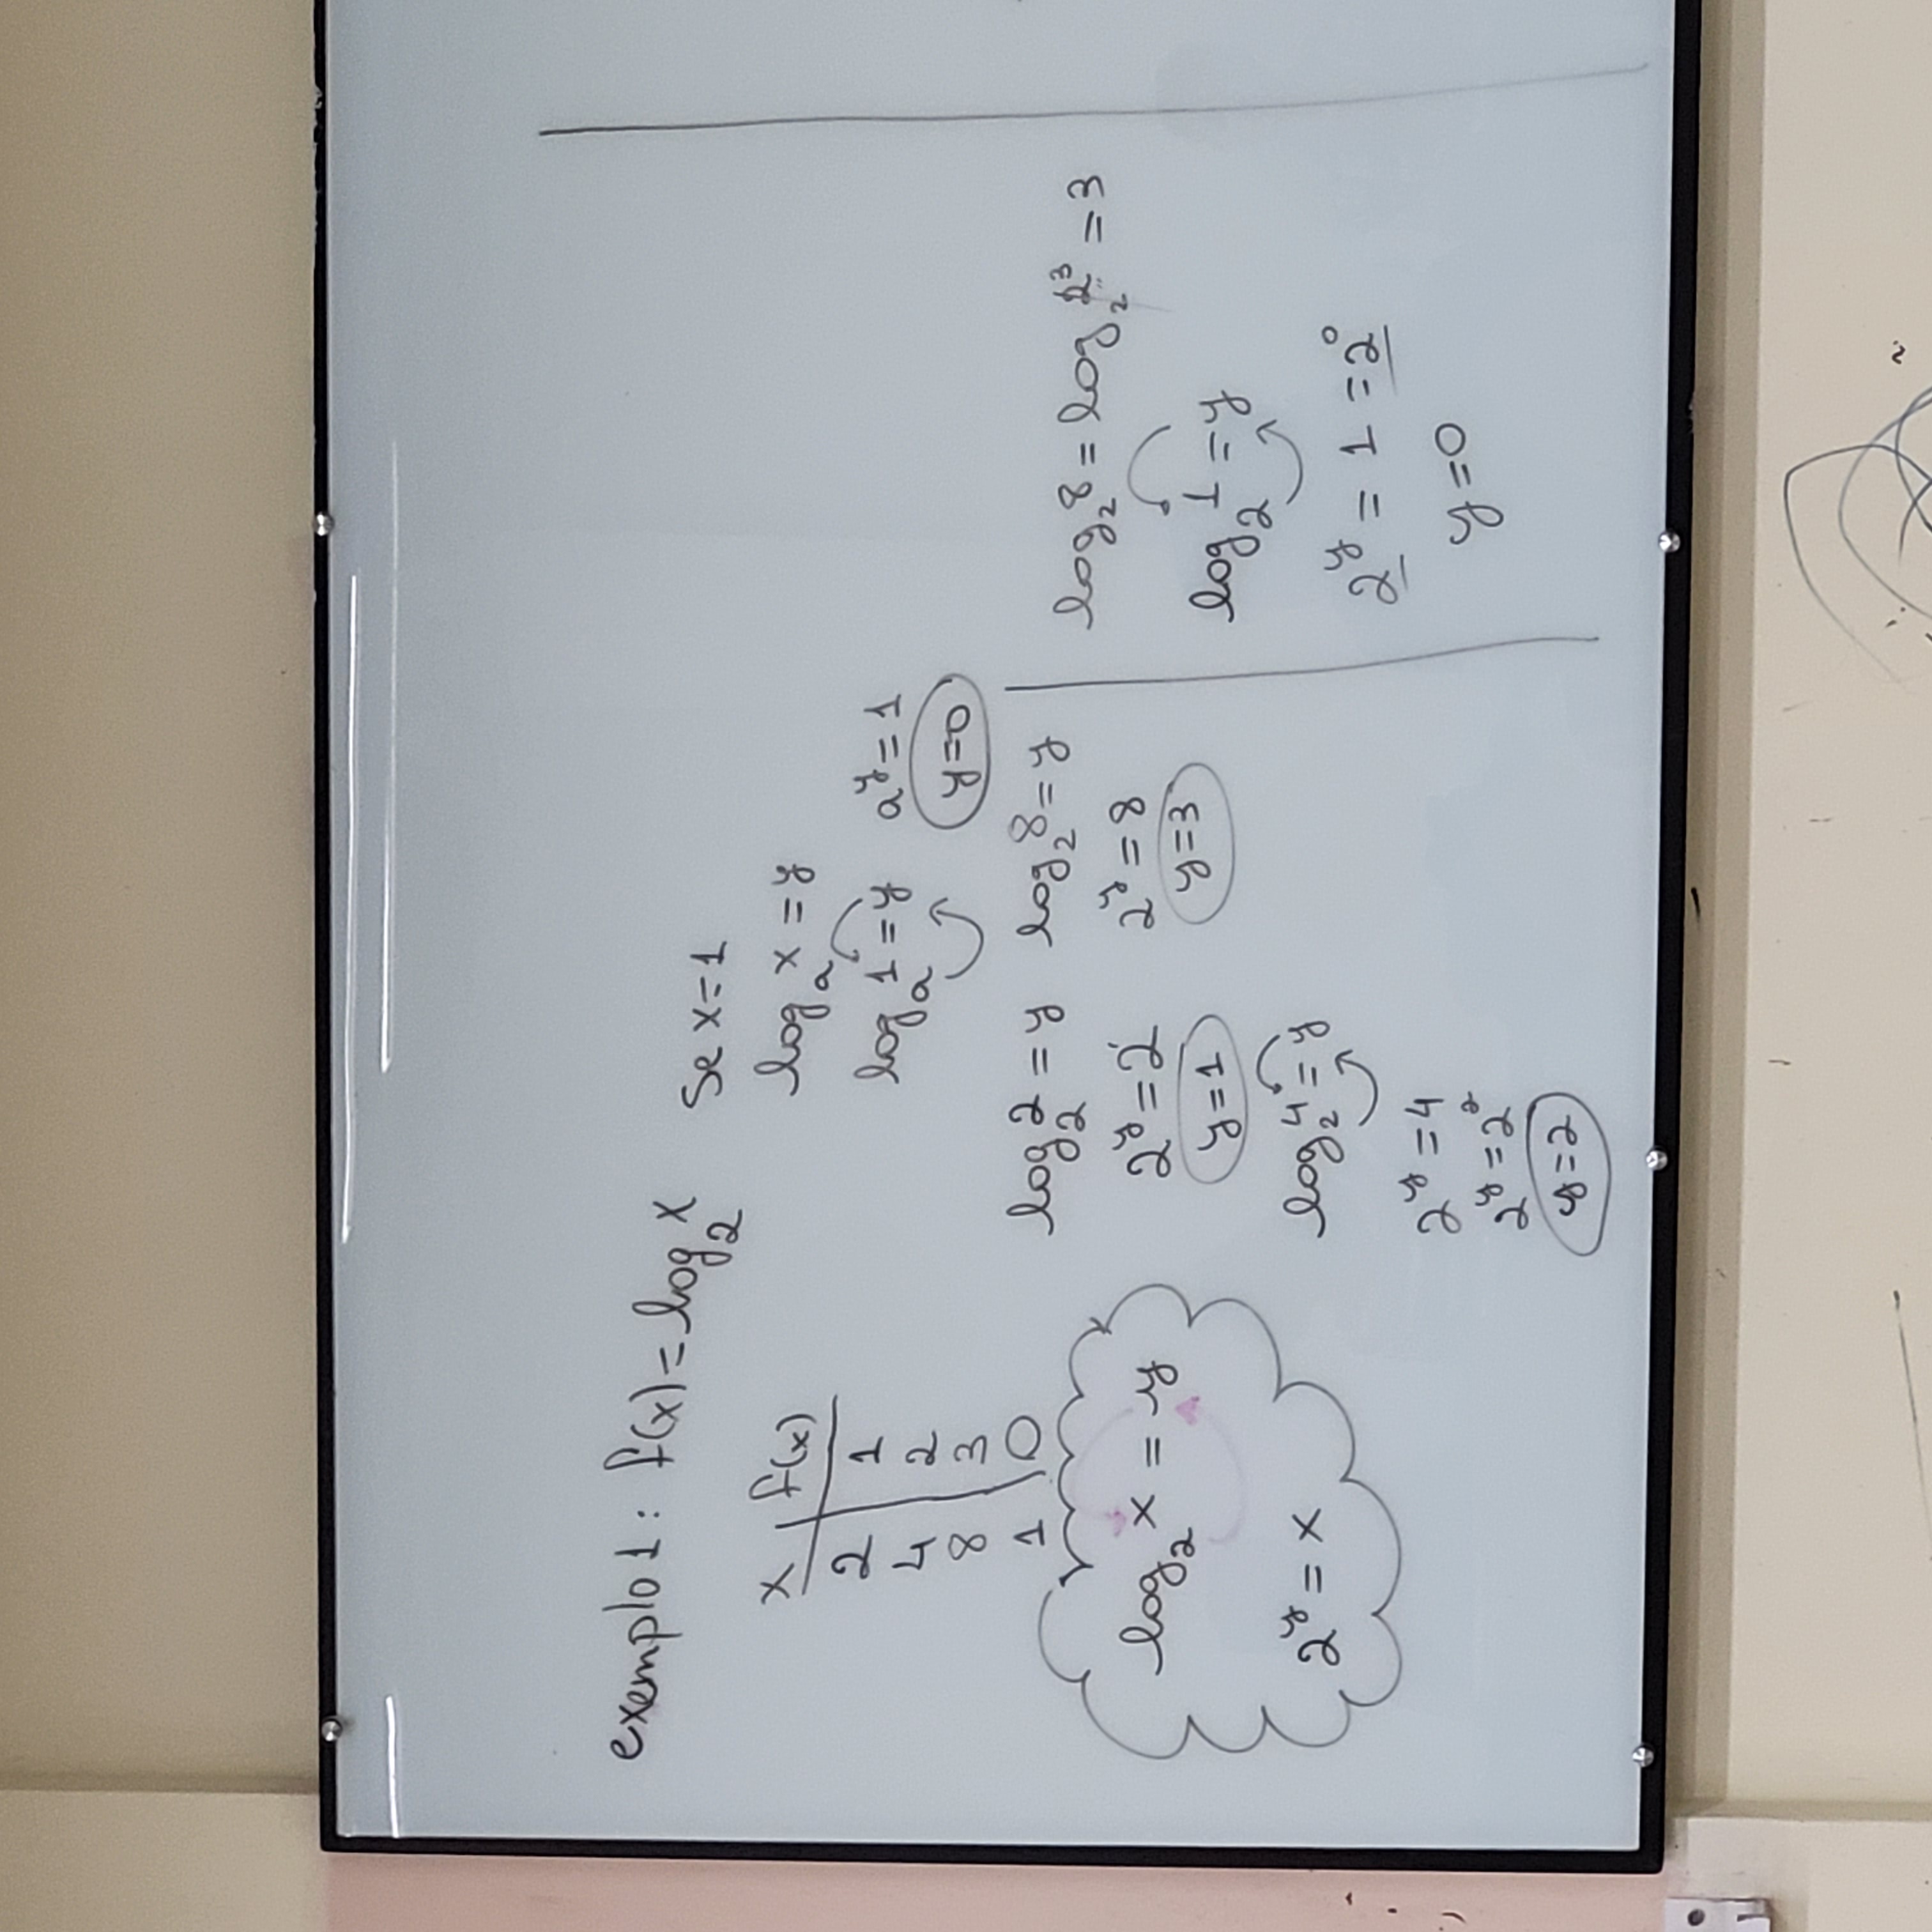 exemplo 1: f(x) = log₂ x
x | f(x)
2 | 1
4 | 2
8 | 3
1 | 0
log₂ x = y
2^y = x
Se x = 1
logₐ x = y
logₐ 1 = y
a^y = 1
y = 0
log₂ 2 = y
2^y = 2
y = 1
log₂ 4 = y
2^y = 4
2^y = 2²
y = 2
log₂ 8 = y
2^y = 8
y = 3
log₂ 8 = log₂ 2³ = 3
log₂ 1 = y
2^y = 1 = 2⁰
y = 0